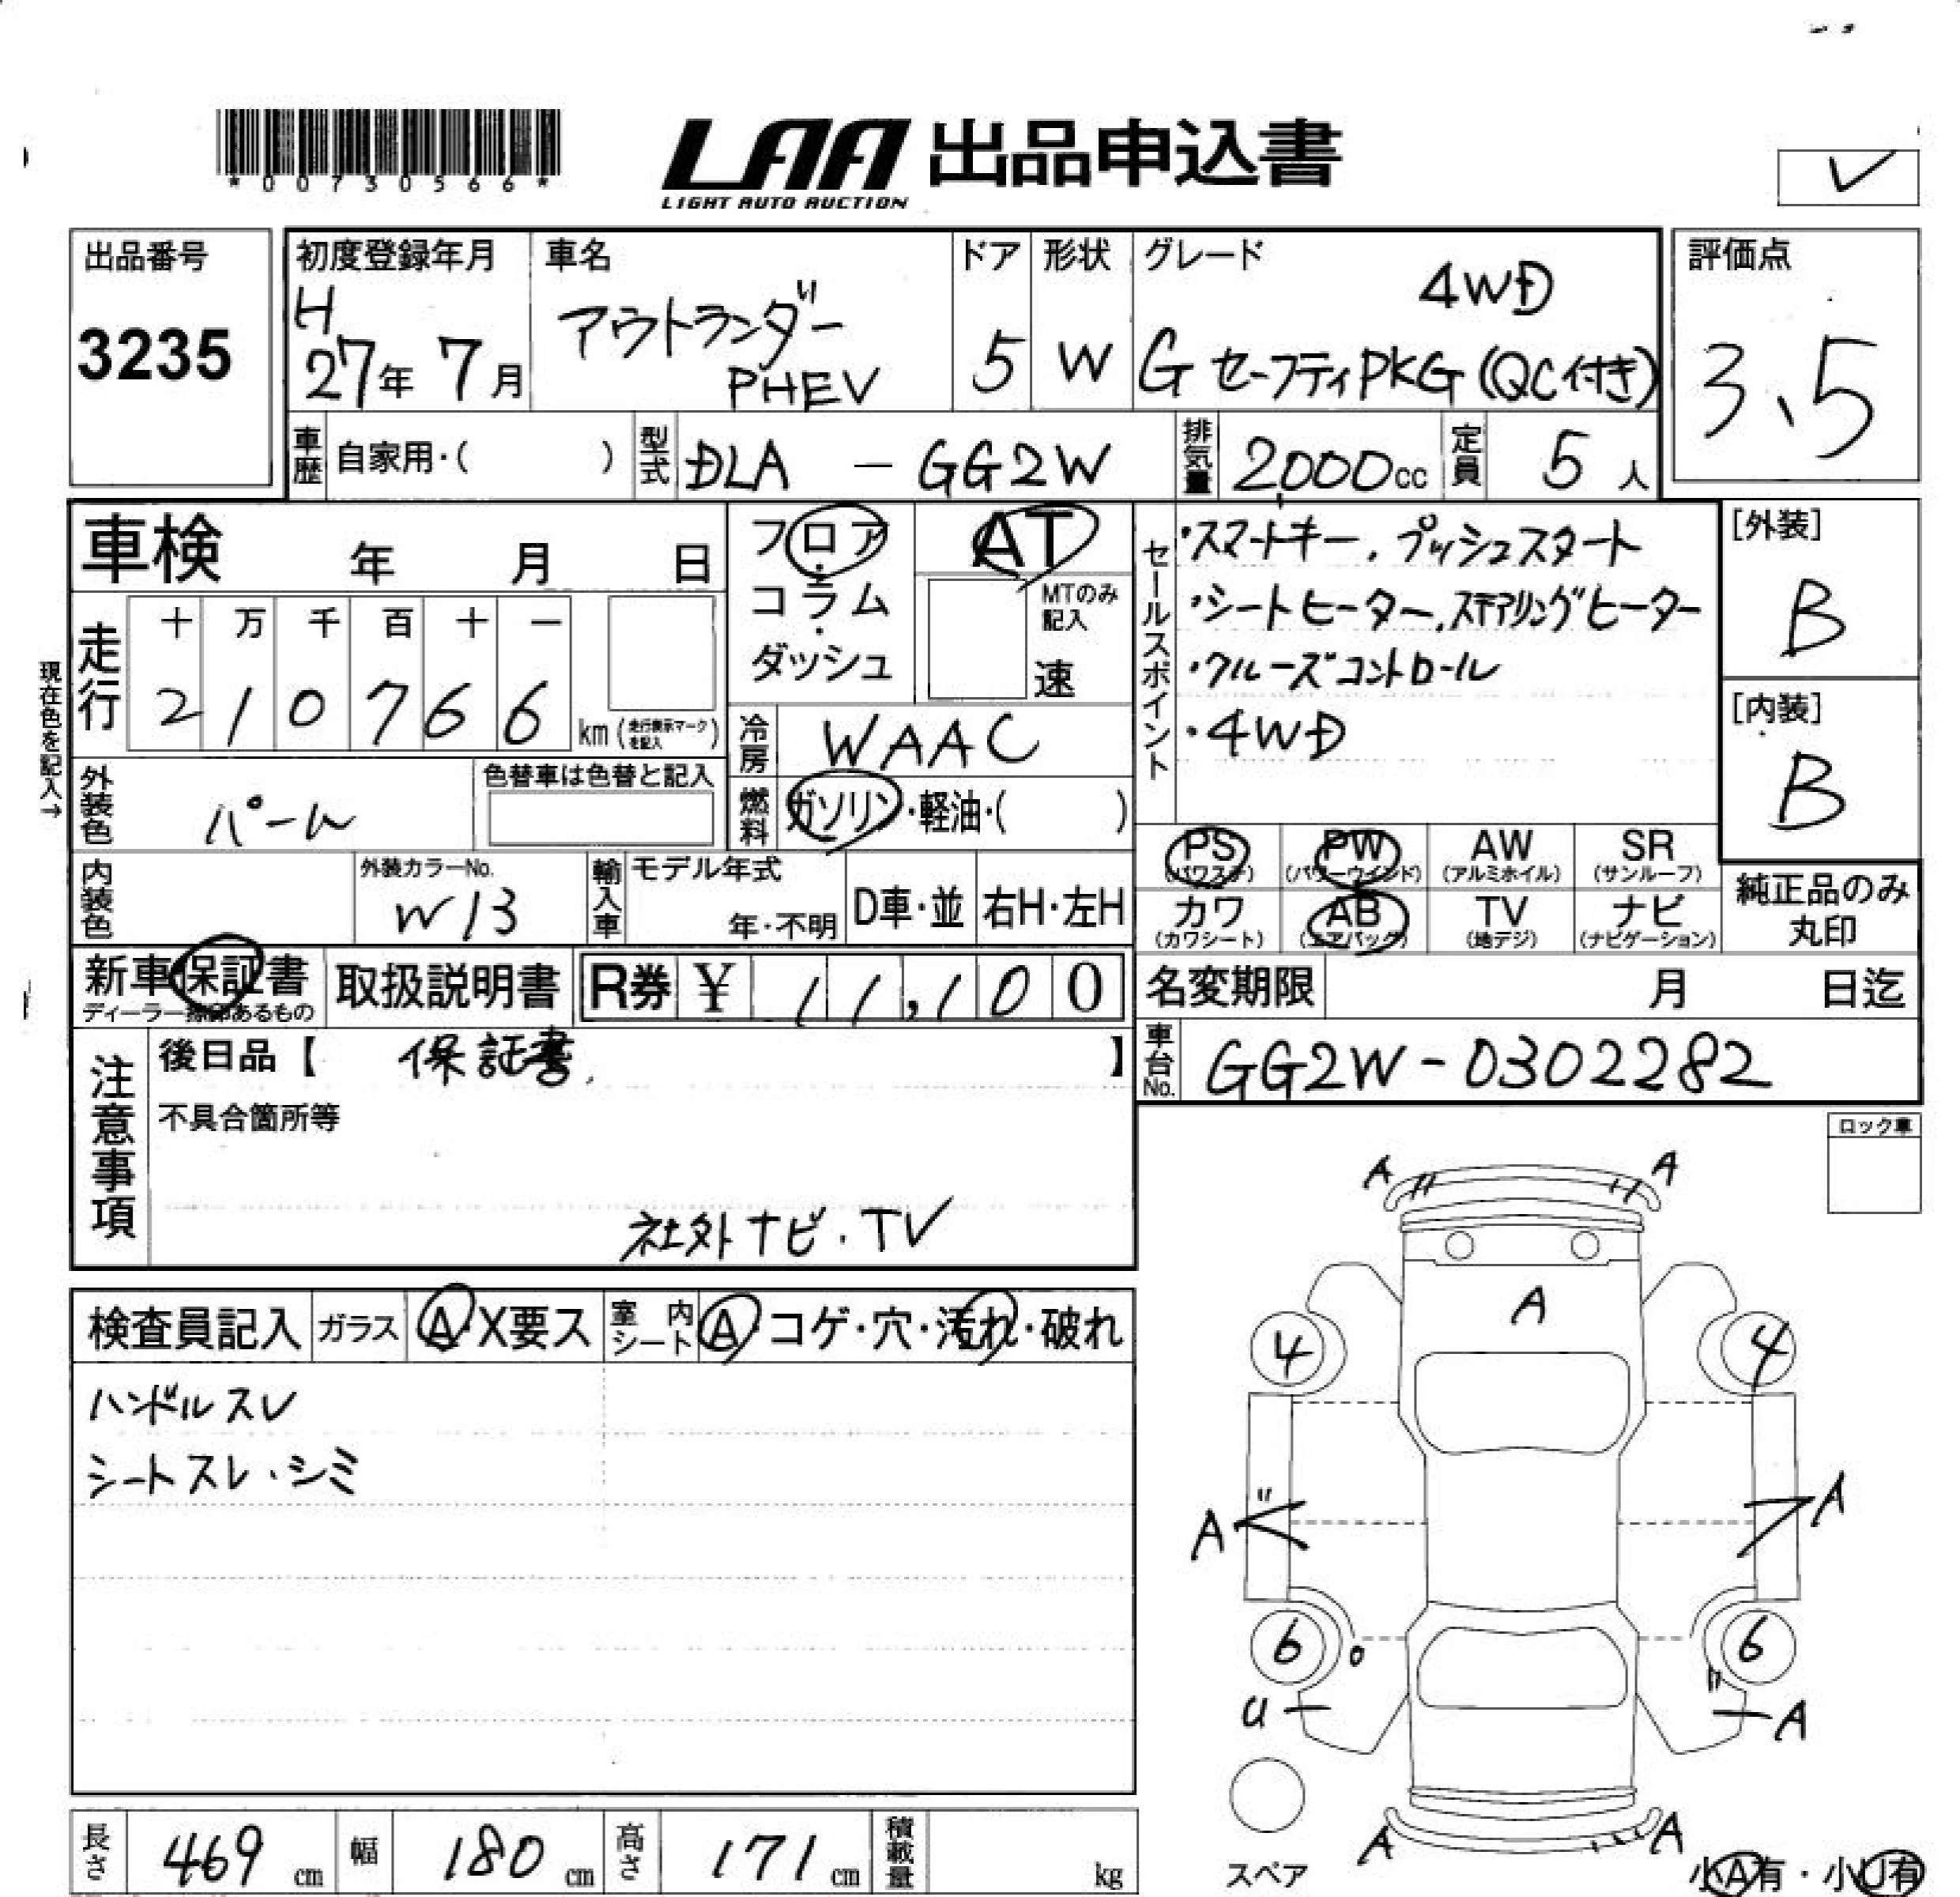 *00730566*
LAA 出品申込書
LIGHT AUTO AUCTION
出品番号
3235
初度登録年月
H
27年 7月
車名
アウトランダー
PHEV
ドア
5
形状
W
グレード
4WD
G セーフティPKG (QC付き)
評価点
3.5
車歴 自家用・( )
型式 DLA - GG2W
排気量 2000cc
定員 5人
車検 年 月 日
フロア・コラム・ダッシュ
AT
MTのみ記入
速
現在色を記入→
走行
十 万 千 百 十 一
2 1 0 7 6 6 km (走行表示マークを記入)
冷房 WAAC
燃料 ガソリン・軽油・( )
外装色 パール
色替車は色替と記入
内装色
外装カラーNo.
W13
輸入車 モデル年式
年・不明
D車・並
右H・左H
セールスポイント
・スマートキー、プッシュスタート
・シートヒーター、ステアリングヒーター
・クルーズコントロール
・4WD
[外装]
B
[内装]
B
PS (パワステ)
PW (パワーウインド)
AW (アルミホイル)
SR (サンルーフ)
カワ (カワシート)
AB (エアバッグ)
TV (地デジ)
ナビ (ナビゲーション)
純正品のみ
丸印
新車保証書
ディーラー捺印あるもの
取扱説明書
R券 ¥ 11,100
名変期限 月 日迄
車台No. GG2W-0302282
注意事項
後日品【 保証書 】
不具合箇所等
社外ナビ・TV
ロック車
検査員記入
ガラス A・X要ス
室内シート A・コゲ・穴・汚れ・破れ
ハンドルスレ
シートスレ・シミ
A A
A
4 4
A A
6 6
U A
A A
スペア
小A有・小U有
長さ 469 cm
幅 180 cm
高さ 171 cm
積載量 kg